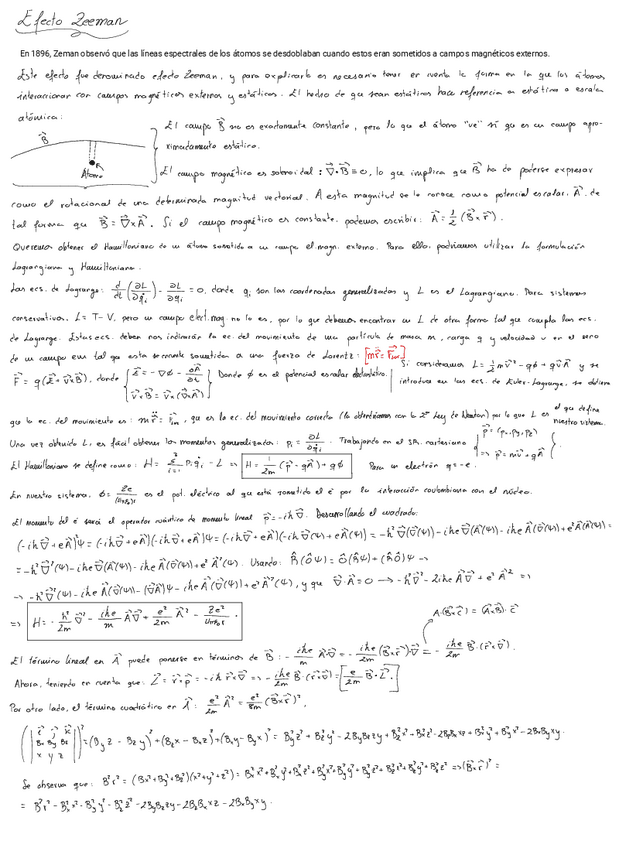 Efecto Zeeman
En 1896, Zeman observó que las líneas espectrales de los átomos se desdoblaban cuando estos eran sometidos a campos magnéticos externos.
Este efecto fue denominado efecto Zeeman, y para explicarlo es necesario tener en cuenta la forma en la que los átomos
interaccionan con campos magnéticos externos y estáticos. El hecho de que sean estáticos hace referencia a estático a escala
atómica:
El campo B⃗ no es exactamente constante, pero lo que el átomo "ve" sí que es un campo apro-
ximadamente estático.
B⃗
Átomo
El campo magnético es solenoidal: ∇⃗·B⃗ = 0, lo que implica que B⃗ ha de poderse expresar
como el rotacional de una determinada magnitud vectorial. A esta magnitud se le conoce como potencial escalar, A⃗, de
tal forma que B⃗ = ∇⃗×A⃗. Si el campo magnético es constante, podemos escribir: A⃗ = 1/2 (B⃗×r⃗).
Queremos obtener el Hamiltoniano de un átomo sometido a un campo el.magn. externo. Para ello, podríamos utilizar la formulación
Lagrangiana y Hamiltoniana.
Las ecs. de Lagrange: d/dt(∂L/∂q̇i) - ∂L/∂qi = 0, donde qi son las coordenadas generalizadas y L es el Lagrangiano. Para sistemas
conservativos, L = T - V, pero un campo elect.mag. no lo es, por lo que debemos encontrar un L de otra forma tal que cumpla las ecs.
de Lagrange. Estas ecs. deben nos indicarán la ec. del movimiento de una partícula de masa m, carga q y velocidad v en el seno
de un campo em tal que esta se vería sometida a una fuerza de Lorentz:
F⃗ = q(E⃗ + v⃗×B⃗), donde { E⃗ = -∇Φ - ∂A⃗/∂t
v⃗×B⃗ = v⃗×(∇⃗×A⃗) } Donde Φ es el potencial escalar
Si consideramos L = 1/2 mv⃗² - qΦ + qv⃗A⃗ y se
introduce en las ecs. de Euler-Lagrange, se obtiene
que la ec. del movimiento es: que es la ec. del movimiento correcta (la obtendríamos con la 2ª Ley de Newton) por lo que L es el que define
nuestro sistema.
Una vez obtenido L, es fácil obtener los momentos generalizados: pi = ∂L/∂q̇i. Trabajando en el SR. cartesiano { p⃗ = (px, py, pz)
⇒ p⃗ = mv⃗ + qA⃗ }
El Hamiltoniano se define como: H = Σ pi q̇i - L ⇒ H = 1/2m (p⃗ - qA⃗)² + qΦ Para un electrón q = -e.
En nuestro sistema, Φ = Ze/(4πε₀)r es el pot. eléctrico al que está sometido el e⁻ por la interacción coulombiana con el núcleo.
El momento del e⁻ será el operador cuántico de momento lineal p⃗ = -iħ∇⃗. Desarrollando el cuadrado:
(-iħ∇⃗+eA⃗)²Ψ = (-iħ∇⃗+eA⃗)(-iħ∇⃗+eA⃗)Ψ = (-iħ∇⃗+eA⃗)(-iħ∇⃗(Ψ)+eA⃗(Ψ)) = -ħ²∇⃗(∇⃗(Ψ)) - iħe∇⃗(A⃗(Ψ)) - iħeA⃗(∇⃗(Ψ)) + e²A⃗(A⃗(Ψ)) =
= -ħ²∇⃗²(Ψ) - iħe∇⃗(A⃗(Ψ)) - iħeA⃗(∇⃗(Ψ)) + e²A⃗²(Ψ). Usando: R̂(ÔΨ) = Ô(R̂Ψ) + (R̂Ô)Ψ →
→ -ħ²∇⃗²(Ψ) - iħeA⃗(∇⃗(Ψ)) - (∇⃗A⃗)Ψ - iħeA⃗(∇⃗(Ψ)) + e²A⃗²(Ψ), y que ∇⃗·A⃗ = 0 → -ħ²∇⃗² - 2iħeA⃗∇⃗ + e²A⃗² ⇒
⇒ H = -ħ²/2m ∇⃗² - iħe/m A⃗∇⃗ + e²/2m A⃗² - Ze²/4πε₀r.
A·(B⃗×c⃗) = (A⃗×B⃗)·c⃗
El término lineal en A⃗ puede ponerse en términos de B⃗: -iħe/m A⃗·∇⃗ = -iħe/2m (B⃗×r⃗)·∇⃗ = -iħe/2m B⃗·(r⃗×∇⃗).
Ahora, teniendo en cuenta que: L⃗ = r⃗×p⃗ = -iħ r⃗×∇⃗ ⇒ -iħe/2m B⃗·(r⃗×∇⃗) = e/2m B⃗·L⃗.
Por otro lado, el término cuadrático en A⃗: e²/2m A⃗² = e²/8m (B⃗×r⃗)²,
(| i⃗ j⃗ k⃗ |
| Bx By Bz |
| x y z |)² = (By z - Bz y)² + (Bz x - Bx z)² + (Bx y - By x)² = By²z² + Bz²y² - 2ByBzzy + Bz²x² + Bx²z² - 2BzBxxz + Bx²y² + By²x² - 2BxByxy.
Se observa que: B²r² = (Bx²+By²+Bz²)(x²+y²+z²) = Bx²x² + Bx²y² + Bx²z² + By²x² + By²y² + By²z² + Bz²x² + Bz²y² + Bz²z² ⇒ (B⃗×r⃗)² =
= B²r² - Bx²x² - By²y² - Bz²z² - 2ByBzzy - 2BzBxxz - 2BxByxy.